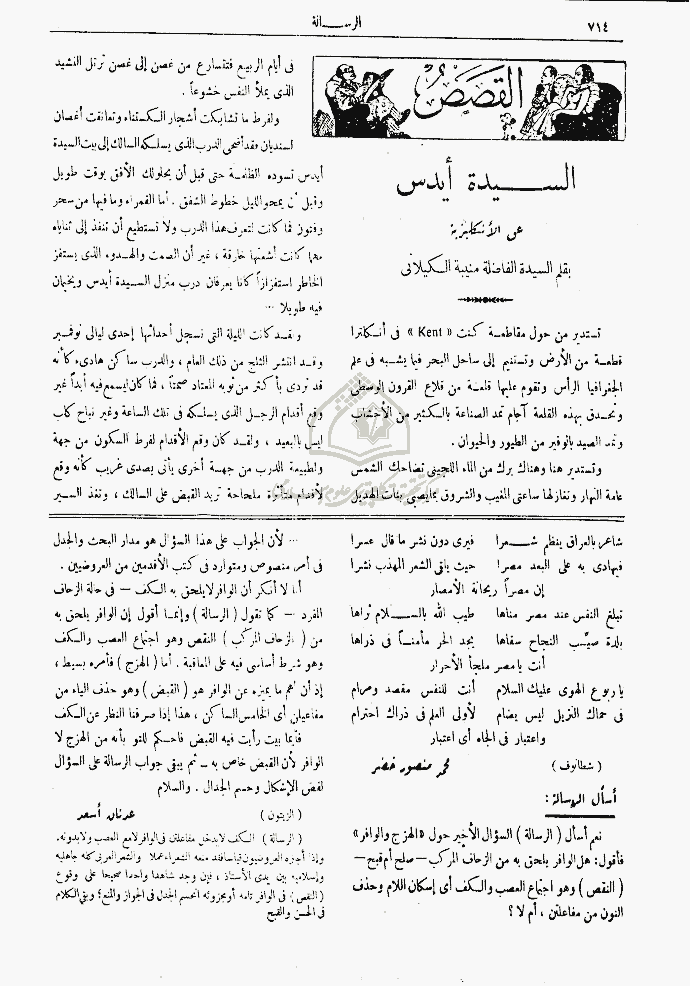 ٧١٤
الرسالة
القصص
السيدة أيدس
عن الانكليزية
بقلم السيدة الفاضلة منيبة الكيلانى
تستدير من حول مقاطعة كنت « Kent » فى انكلترا
قطعة من الأرض وتستنيم إلى ساحل البحر فيما يشبه فى علم
الجغرافيا الرأس وتقوم عليها قلعة من قلاع القرون الوسطى
وتحدق بهذه القلعة آجام تمد الصناعة بالكثير من الأخشاب
وتمد الصيد بالوفير من الطيور والحيوان .
وتستدير هنا وهناك برك من الماء اللجينى تضاحك الشمس
عامة النهار وتغازلها ساعتى المغيب والشروق بما يصبى بنات الهديل
فى أيام الربيع فتتسارع من غصن إلى غصن ترتل النشيد
الذى يملأ النفس خشوعا .
ولفرط ما تشابكت أشجار الكستناء وتعانقت أغصان
السنديان فقد أضحى الدرب الذى يسلكه السالك إلى بيت السيدة
أيدس تسوده الظلمة حتى قبل أن يحلولك الأفق بوقت طويل
وقبل أن يمحو الليل خطوط الشفق . أما القمراء وما فيها من سحر
وفنون فما كانت لتعرف هذا الدرب ولا تستطيع أن تنفذ إلى ثناياه
مهما كانت أشعتها خارقة ، غير أن الصمت والهدوء الذى يستفز
الخاطر استفزازاً كانا يعرفان درب منزل السيدة أيدس ويخيمان
فيه طويلا ...
ولقد كانت الليلة التى نسجل أحداثها إحدى ليالى نوفمبر
وقد انتشر الثلج من ذلك العام ، والدرب ساكن هادىء كأنه
قد تردى بأكثر من ثوبه المعتاد صمتاً ، فما كان ليسمع فيه أبداً غير
وقع أقدام الرجل الذى يسلكه فى تلك الساعة وغير نباح كلب
ليس بالبعيد ، ولقد كان وقع الأقدام لفرط السكون من جهة
ولطبيعة الدرب من جهة أخرى يأتى بصدى غريب كأنه وقع
لأقدام متأثرة ملحاحة تريد القبض على السالك ، ونفذ السير
شاعر بالعراق ينظم شعرا فيرى دون نشر ما قال عسرا
فيهادى به على البعد مصرا حيث يلقى الشعر المهذب نشرا
إن مصراً ريحانة الأمصار
تبلغ النفس عند مصر مناها طيب الله بالسلام ثراها
بلدة صيّب النجاح سقاها يجد الحر مأمناً فى ذراها
أنت يا مصر ملجأ الأحرار
يا ربوع الهوى عليك السلام أنت للنفس مقصد ومرام
فى حماك النزيل ليس يضام لأولى العلم فى ذراك احترام
واعتبار فى الجاه أى اعتبار
( شطانوف ) محمد منصور خضر
أسأل الرسالة :
نعم أسأل ( الرسالة ) السؤال الأخير حول « الهزج والوافر »
فأقول : هل الوافر يلحق به من الزحاف المركب — صلح أم قبح —
( النقص ) وهو اجتماع العصب والكف أى إسكان اللام وحذف
النون من مفاعلتن ، أم لا ؟
... لأن الجواب على هذا السؤال هو مدار البحث والجدل
فى أمر منصوص ومتوارد فى كتب الأقدمين من العروضيين .
أنا لا أنكر أن الوافر لا يلحق به الكف — فى حالة الزحاف
المفرد — كما تقول ( الرسالة ) وإنما أقول إن الوافر يلحق به
من ( الزحاف المركب ) النقص وهو اجتماع العصب والكف
وهو شرط أساسى فيه على المعاقبة . أما ( الهزج ) فأمره بسيط ،
إذ أن أهم ما يميزه عن الوافر هو ( القبض ) وهو حذف الياء من
مفاعيلن أى الخامس الساكن ، هذا إذا صرفنا النظر عن الكف
فأيما بيت رأيت فيه القبض فاحكم للتو بأنه من الهزج لا
الوافر لأن القبض خاص به — ثم يبقى جواب الرسالة على السؤال
لفض الإشكال وحسم الجدال . والسلام
( الزيتون ) عدنان أسعد
( الرسالة ) الكف لا يدخل مفاعلتن فى الوافر مع العصب ولا بدونه .
وإذا أجازه العروضيون قياسا فقد منعه الشعراء عملا والشعر العربى كله جاهليه
وإسلاميه بين يدى الأستاذ ، فإن وجد شاهدا واحدا صحيحا على وقوع
( النقص ) فى الوافر تامه أو مجزوئه انحسم الجدل فى الجواز والمنع ؛ وبقى الكلام
فى الحسن والقبح